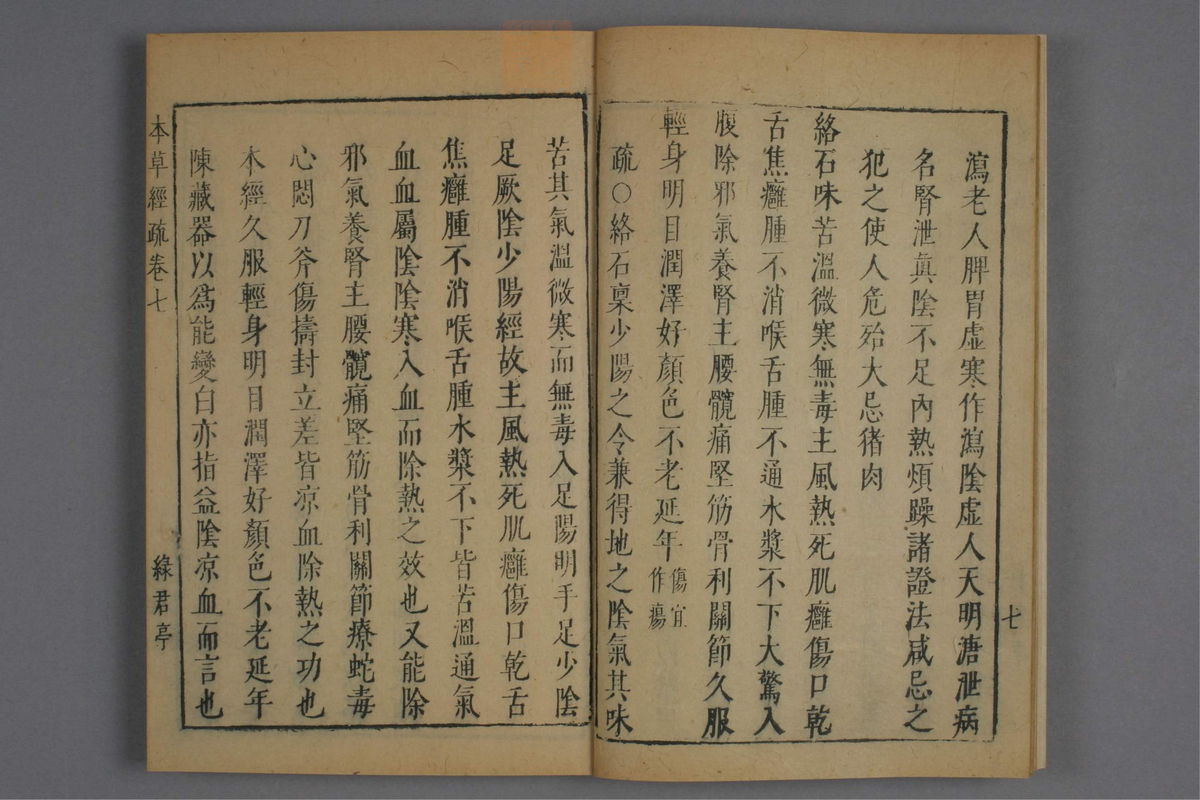 瀉老人脾胃虛寒作瀉陰虛人天明溏泄病
名腎泄眞陰不足內熱煩躁諸證法咸忌之
犯之使人危殆大忌猪肉
絡石味苦溫微寒無毒主風熱死肌癰傷口乾
舌焦癰腫不消喉舌腫不通水漿不下大驚入
腹除邪氣養腎主腰髖痛堅筋骨利關節久服
輕身明目潤澤好顏色不老延年傷宜作瘍
疏○絡石稟少陽之令兼得地之陰氣其味
七
苦其氣溫微寒而無毒入足陽明手足少陰
足厥陰少陽經故主風熱死肌癰傷口乾舌
焦癰腫不消喉舌腫水漿不下皆苦溫通氣
血血屬陰陰寒入血而除熱之效也又能除
邪氣養腎主腰髖痛堅筋骨利關節療蛇毒
心悶刀斧傷擣封立差皆凉血除熱之功也
本經久服輕身明目潤澤好顏色不老延年
陳藏器以爲能變白亦指益陰凉血而言也
本草經疏卷七
綠君亭